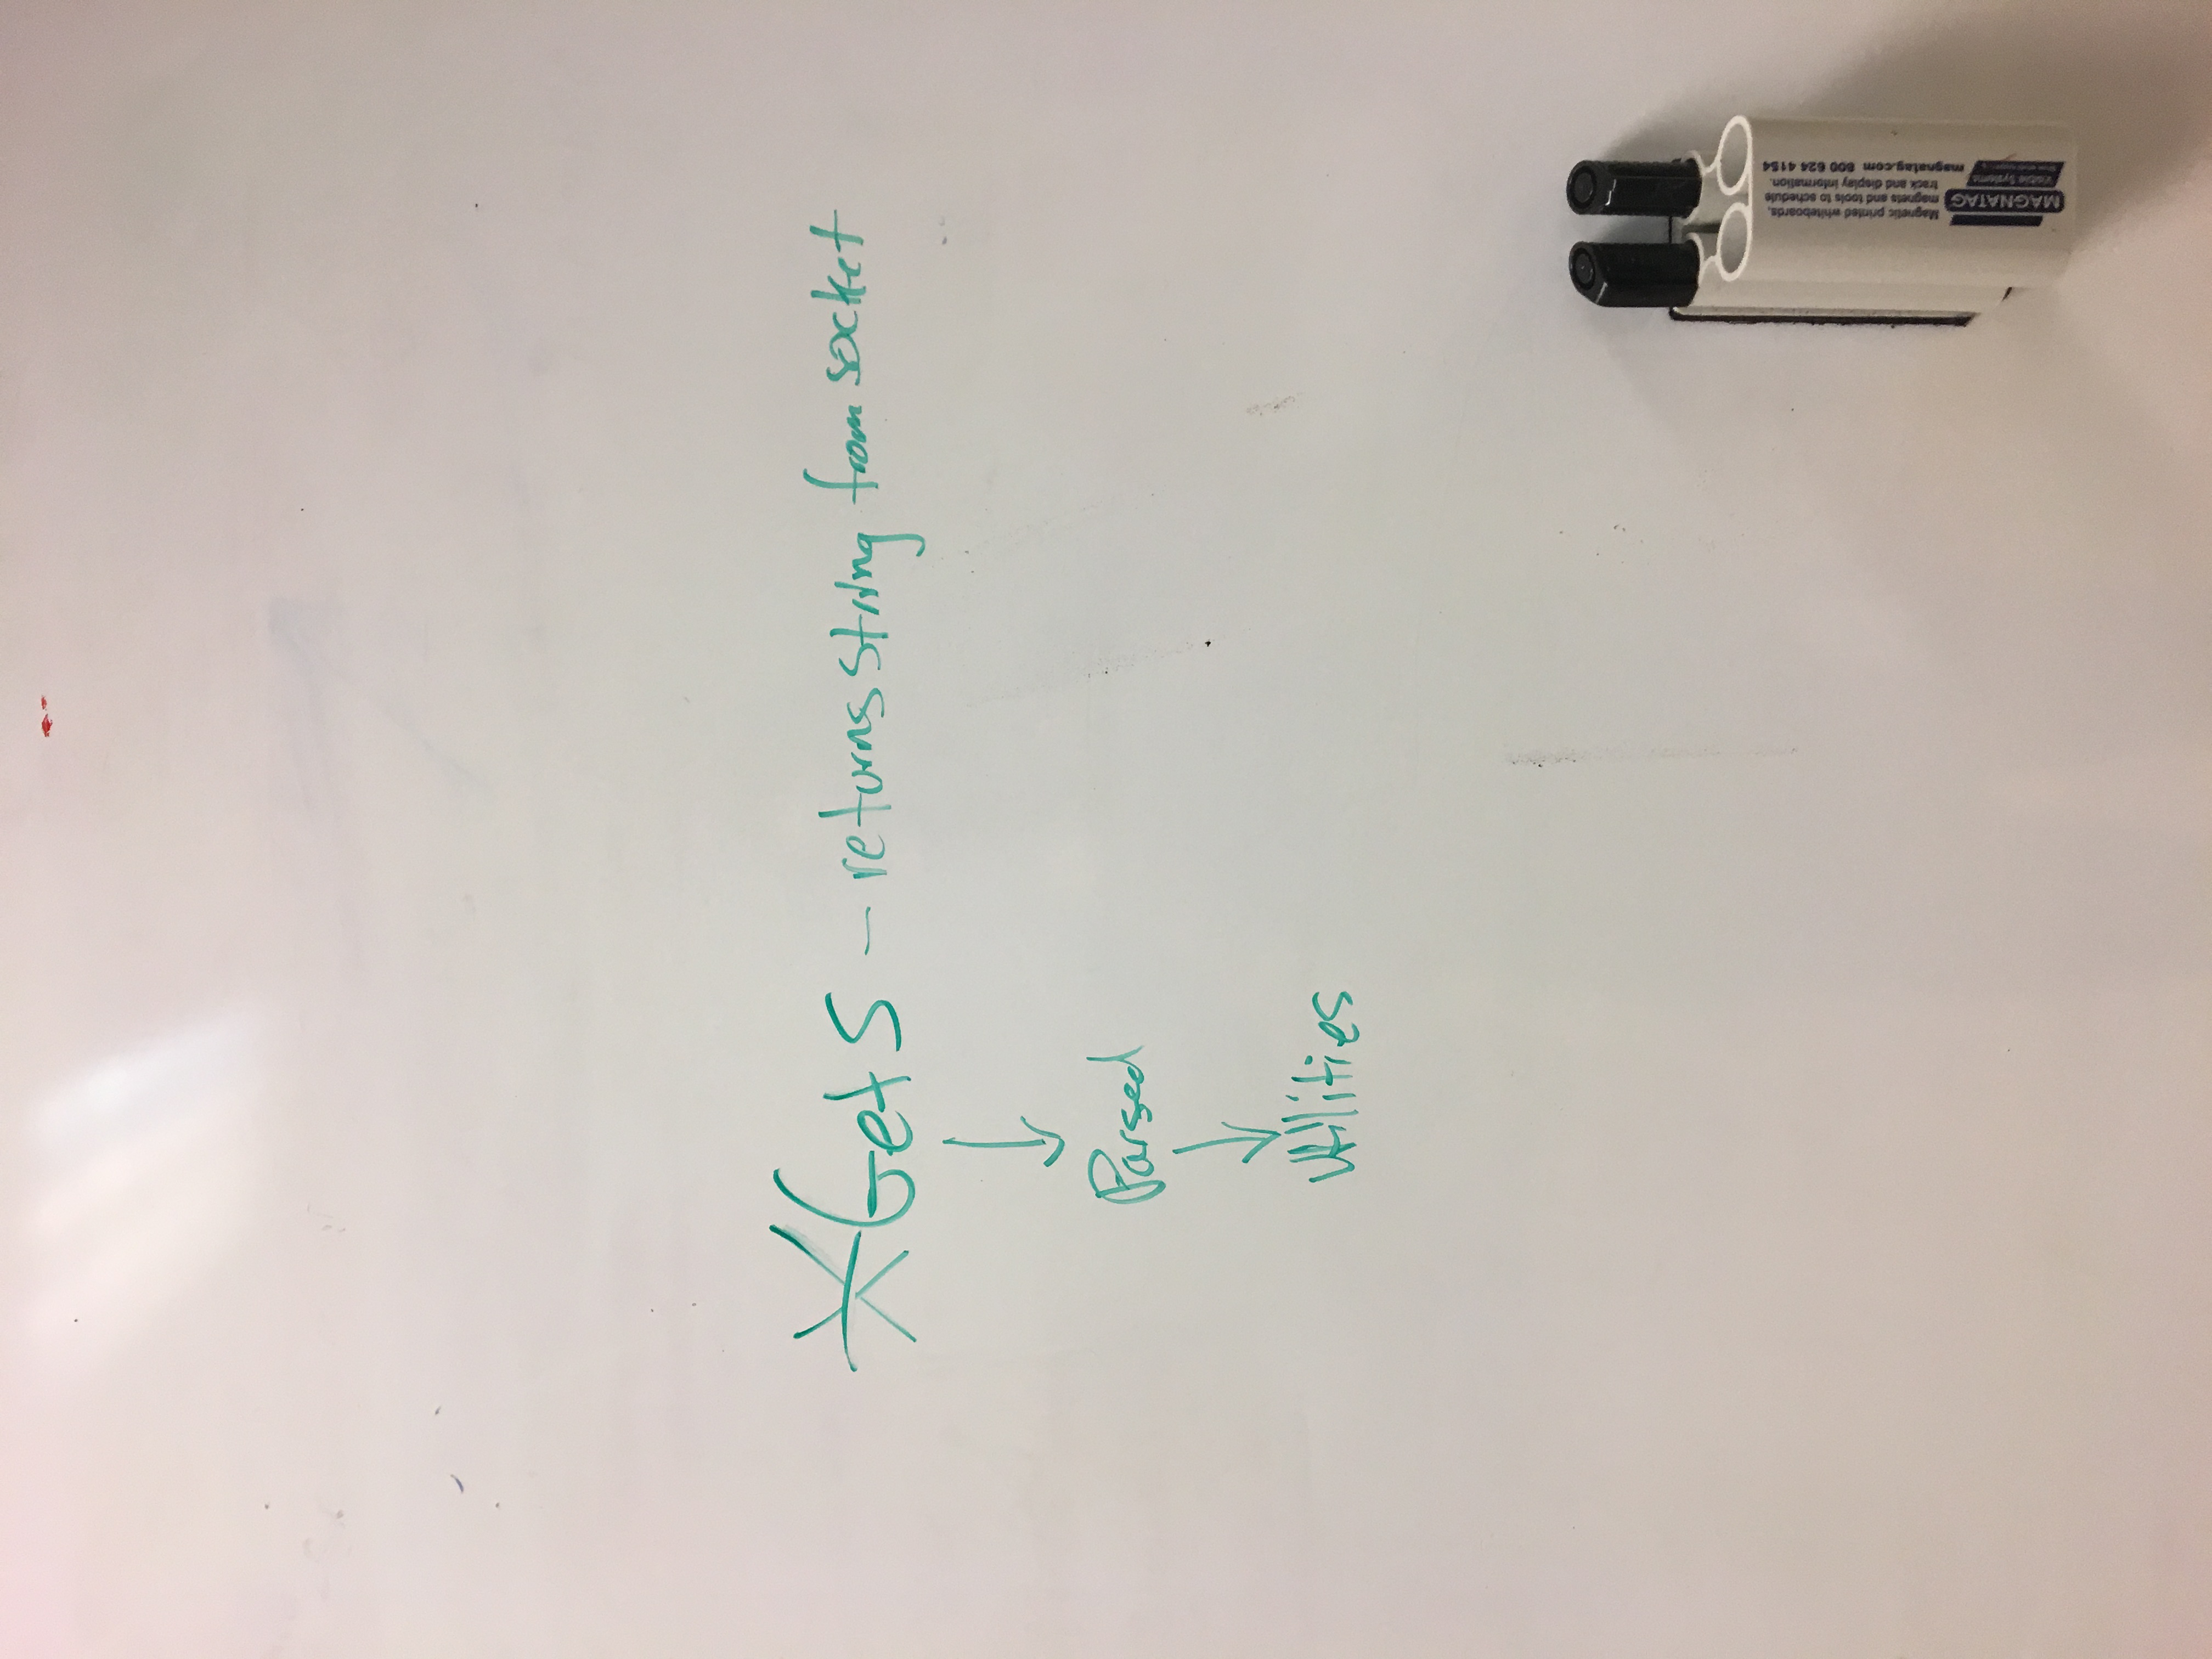 *GetS - returns string from socket
Parsed
Utilities
Magnetic printed whiteboards,
magnets and tools to schedule
track and display information.
magnatag.com 800 624 4154
MAGNATAG
Visible Systems